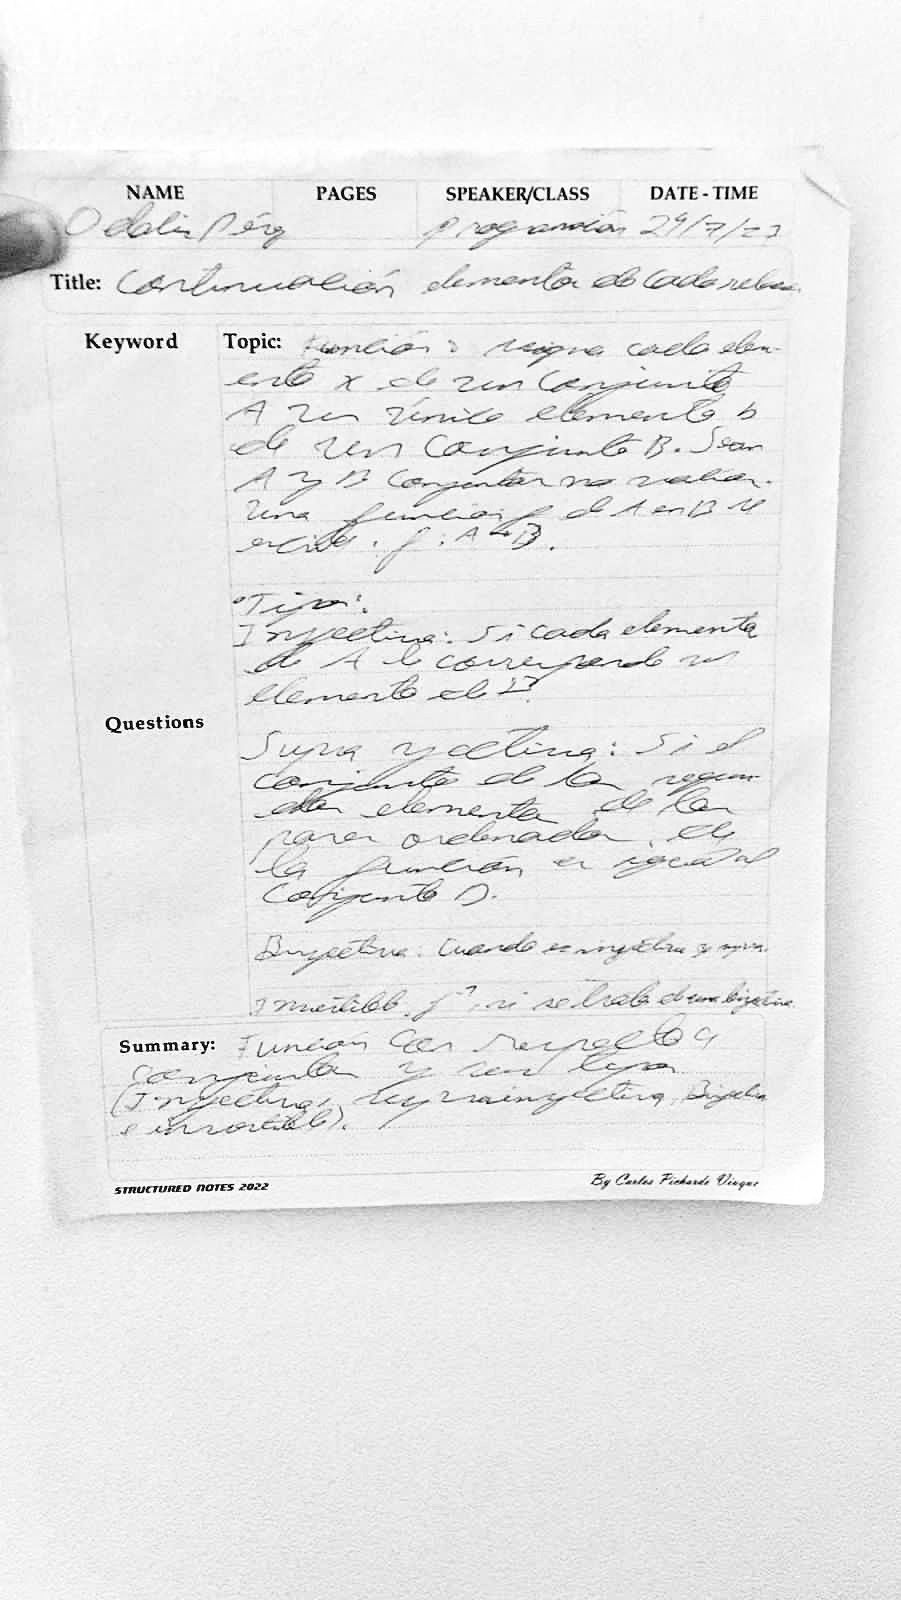 NAME PAGES SPEAKER/CLASS DATE - TIME
Odalis Pérez 29/7/23
Title: Continuación elementos de cada
Keyword
Topic: Función: asigna cada elem-
ento x de un Conjunto
A un único elemento b
de un Conjunto B. Sean
A y B Conjuntos no vacíos.
Una función f de A en B se
escribe. f: A→B.
Tipos:
Inyectiva: Si cada elemento
de A le corresponde un
elemento de B.
Questions
Supra yectiva: Si el
conjunto de los segun-
dos elementos de los
pares ordenados de
la función es igual al
Conjunto B.
Biyectiva: Cuando es inyectiva y supra.
Invertible f⁻¹, si se trata de una biyectiva
Summary: Función con respecto a
conjuntos y sus tipos
(Inyectiva, Biyectiva
e invertible).
STRUCTURED NOTES 2022
By Carlos Pichardo Viuque